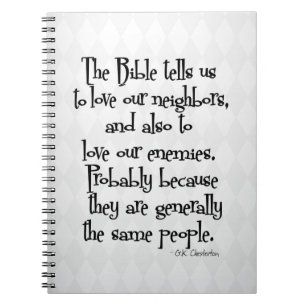 The Bible tells us
to love our neighbors,
and also to
love our enemies.
Probably because
they are generally
the same people.
~ G.K. Chesterton